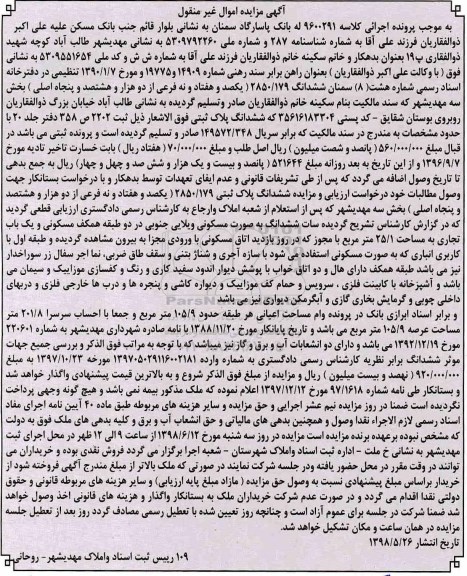 آگهی مزایده اموال غیر منقول
به موجب پرونده اجرائی کلاسه ۹۶۰۰۲۹۱ له بانک پاسارگاد سمنان به نشانی بلوار قائم جنب بانک مسکن علیه علی اکبر
ذوالفقاریان فرزند علی آقا به شماره شناسنامه ۲۸۷ و شماره ملی ۵۳۰۹۷۹۲۲۶۰ به نشانی مهدیشهر طالب آباد کوچه شهید
ذوالفقاری پ۱۹ بعنوان بدهکار و خانم سکینه خانم ذوالفقاریان فرزند علی آقا به شماره ش ش و کد ملی ۵۳۰۹۵۵۱۶۵۴ به نشانی
فوق ( با وکالت علی اکبر ذوالفقاریان ) بعنوان راهن برابر سند رهنی شماره ۱۴۹۰۹ و ۱۹۷۷۵ مورخ ۱۳۹۰/۱/۷ تنظیمی در دفترخانه
اسناد رسمی شماره هشت( ۸) سمنان ششدانگ ۲۸۵۰/۱۷۹ ( یکصد و هفتاد و نه فرعی از دو هزار و هشتصد و پنجاه اصلی ) بخش
سه مهدیشهر که سند مالکیت بنام سکینه خانم ذوالفقاریان صادر وتسلیم گردیده به نشانی طالب آباد خیابان بزرگ ذوالفقاریان
روبروی بوستان شقایق - کد پستی ۳۵۶۱۶۱۸۳۳۰۴ که ششدانگ پلاک ثبتی فوق الاشعار ذیل ثبت ۲۲۰۲ ص ۳۵۸ دفتر جلد ۲۰ با
حدود مشخصات به مندرج در سند مالکیت که برابر سریال ۱۴۹۵۷۲/۳۴۸ صادر و تسلیم گردیده است و پرونده ثبتی می باشد در
قبال مبلغ ۵۶۰/۰۰۰/۰۰۰ ( پانصد و شصت میلیون ) ریال اصل طلب و مبلغ ۷۰/۰۰۰/۰۰۰ ( هفتاد ریال ) بابت خسارت تاخیر تادیه مورخ
۱۳۹۶/۹/۷ و از این تاریخ به بعد روزانه مبلغ ۵۲۱۶۴۴ ( پانصد و بیست و یک هزار و شش صد و چهل و چهار) ریال به جمع بدهی
تا تاریخ وصول اضافه می گردد که پس از طی تشریفات قانونی و عدم ایفای تعهدات توسط بدهکار و با درخواست بستانکار جهت
وصول مطالبات خود درخواست ارزیابی و مزایده ششدانگ پلاک ثبتی ۲۸۵۰/۱۷۹ ( یکصد و هفتاد و نه فرعی از دو هزار و هشتصد
و پنجاه اصلی ) بخش سه مهدیشهر که پس از استعلام از شعبه املاک وارجاع به کارشناس رسمی دادگستری ارزیابی قطعی گردید
که در گزارش کارشناس تشریح گردیده ساختمان به صورت مسکونی ویلایی جنوبی در دو طبقه همکف مسکونی و یک باب
تجاری به مساحت ۲۵/۱ متر مربع با مجوز که در روز بازدید اتاق مسکونی با ورودی مجزا به بیرون مشاهده گردیده و طبقه اول با
کاربری انباری که به صورت مسکونی استفاده می شود با سازه آجری و شناژ بتنی و سقف طاق ضربی، نما اجر سفال زر سوراخدار
نیز می باشد طبقه همکف دارای هال و دو اتاق خواب با پوشش دیوار اندود سفید کاری و رنگ و کفسازی موزاییک و سیمان می
باشد و آشپزخانه با کابینت فلزی ، سرویس و حمام کف موزاییک و دیواره کاشی و پنجره ها و درب ها خارجی فلزی و دربهای
داخلی چوبی و گرمایش بخاری گازی و آبگرمکن دیواری نیز می باشد
و برابر اسناد ابرازی بانک در پرونده وام مساحت اعیانی هر طبقه حدود ۱۰۵/۹ متر مربع و جمعا با احساب سرسرا ۲۰۱/۸ متر
مساحت عرصه ۱۰۵/۹ متر مربع می باشد و تاریخ پایانکار مورخ ۱۳۸۸/۱۱/۲۰ با نامه صادره شهرداری مهدیشهر به شماره ۲۲۰۶۰۱
مورخ ۱۳۹۲/۱۲/۱۹ می باشد و دارای دو انشعابات آب و برق و گاز نیز میباشد که با توجه به مراتب فوق الذکر و بررسی جمیع جهات
موثر ششدانگ برابر نظریه کارشناس رسمی دادگستری به شماره وارده ۱۳۹۷۰۵۰۲۹۱۱۶۰۰۲۱۸۱ مورخه ۱۳۹۷/۱۰/۲۳ به مبلغ
۹۲۰/۰۰۰/۰۰۰ ( نهصد و بیست میلیون ) ریال و مزایده از مبلغ فوق الذکر شروع و به بالاترین قیمت پیشنهادی واگذار خواهد شد
و بستانکار طی نامه شماره ۹۷/۱۶۱۸ مورخ ۱۳۹۷/۱۲/۱۲ اعلام نموده که ملک مذکور بیمه نمی باشد و هیچ گونه وجهی پرداخت
نگردیده است ضمنا در روز مزایده نیم عشر اجرایی و حق مزایده و سایر هزینه های مربوطه طبق ماده ۴۰ آیین نامه اجرای مفاد
اسناد رسمی لازم الاجراء نقدا وصول و همچنین بدهی های مالیاتی و حق انشعاب آب و برق و کلیه بدهی های ملک فوق به دولت
که مشخص نبوده برعهده برنده مزایده است مزایده در روز سه شنبه مورخ ۱۳۹۸/۶/۱۲ از ساعت ۹ الی ۱۲ ظهر در محل اجرای ثبت
مهدیشهر به نشانی خ ملت - اداره ثبت اسناد واملاک شهرستان - شعبه اجرا برگزار می گردد فروش نقدی بوده و خریداران می
توانند در وقت مقرر در محل حضور یافته ودر جلسه شرکت نمایند در صورتی که ملک بالاتر از مبلغ مندرج آگهی فروخته شود از
خریدار براساس مبلغ پیشنهادی نسبت به وصول حق مزایده ( مازاد مبلغ پایه ارزیابی) و سایر هزینه های مربوطه قانونی و حقوق
دولتی نقدا اقدام می گردد و در صورت عدم شرکت خریداران ملک به بستانکار واگذار و هزینه های قانونی اخذ وصول خواهد
شد ضمنا شرکت در جلسه برای عموم آزاد است و چنانچه روز تعیین شده با تعطیل رسمی مصادف گردد روز بعد از تعطیل جلسه
مزایده در همان ساعت و مکان تشکیل خواهد شد.
تاریخ انتشار ۱۳۹۸/۵/۲۶
۱۰۹ رییس ثبت اسناد واملاک مهدیشهر - روحانی